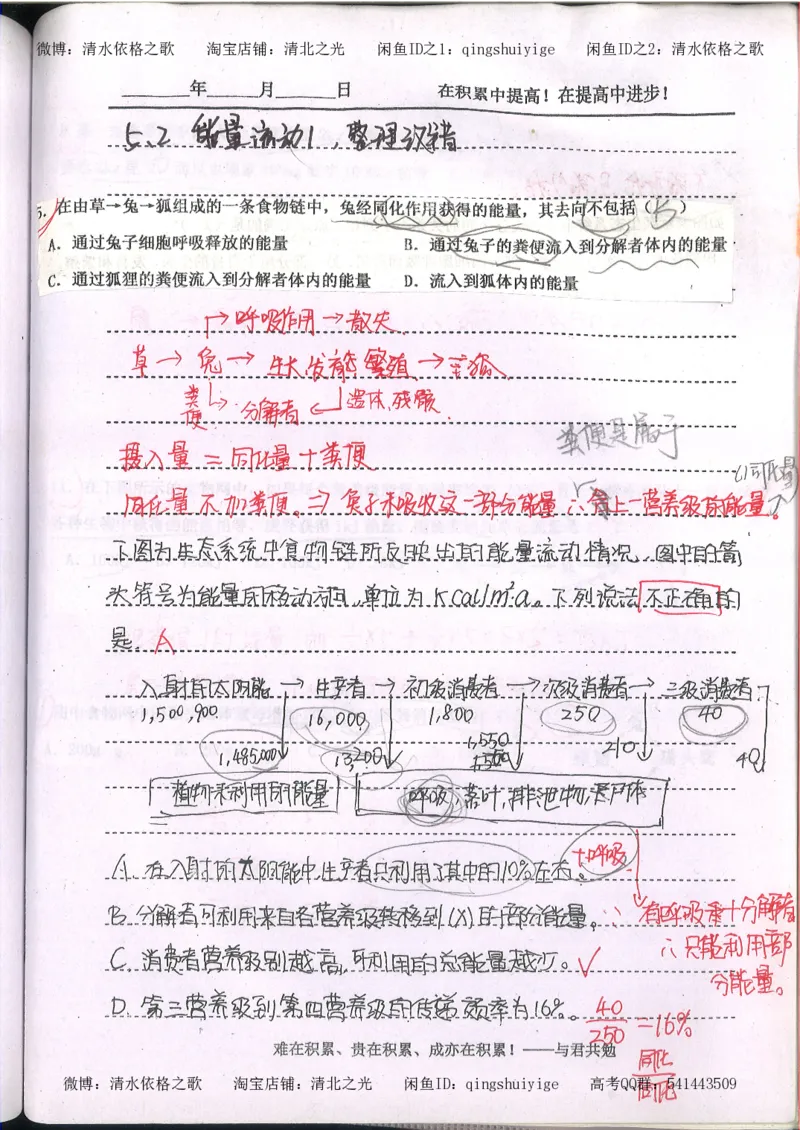 微博：清水依格之歌 淘宝店铺：清北之光 闲鱼ID之1：qingshuiyige 闲鱼ID之2：清水依格之歌
年 月 日 在积累中提高！在提高中进步！
5.2 能量流动1、整理
5. 在由草→兔→狐组成的一条食物链中，兔经同化作用获得的能量，其去向不包括（B）
A．通过兔子细胞呼吸释放的能量 B．通过兔子的粪便流入到分解者体内的能量
C．通过狐狸的粪便流入到分解者体内的能量 D．流入到狐体内的能量
→呼吸作用→散失
草→兔→生长发育繁殖→狐
粪便 → 分解者 ← 遗体，残骸
粪便是属于
摄入量＝同化量＋粪便
(同化量)
同化量不加粪便。⇒兔子未吸收这一部分能量∴含上一营养级的能量。
下图为生态系统中食物链所反映出的能量流动情况，图中的箭
头符号为能量的移动方向，单位为kcal/m²·a。下列说法不正确的
是. A
入射的太阳能→生产者→初级消费者→次级消费者→三级消费者
1,500,900 16,000 1,800 250 40
1,485,000 13200 1,550 210 40
植物未利用的能量 呼吸，落叶，排泄物，尸体
A. 在入射的太阳能中，生产者只利用了其中的10%左右。 +呼吸
B. 分解者可利用来自各营养级转移到(X)的部分能量。∵有呼吸量+分解者
∴只能利用部
C. 消费者营养级别越高，可利用的总能量越少。√
分能量。
D. 第三营养级到第四营养级的传递效率为16%。 40/250 =16%
同化/同化
难在积累、贵在积累、成亦在积累！——与君共勉
微博：清水依格之歌 淘宝店铺：清北之光 闲鱼ID：qingshuiyige 高考QQ群：541443509